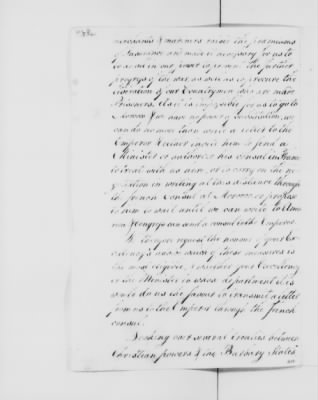 merchants & mariners raised the praemiums
of Insurance are made it necessary for us to
to do all in our power to prevent the further
progress of the war as well as to procure the
liberation of our Countrymen that are made
Prisoners. As it is impossible for us to go to
Morocco & we have no power of Substitution, we
can do no more than write a letter to the
Emperor & either invite him to send a
Minister or authorize his consul in France
to treat with us here, or to carry on the ne-
gotiation in writing at this distance through
the french Consul at Morocco or propose
to him to wait until we can write to Ame
rica & Congress can send a consul to the Emperor.
We therefore request the favour of your Ex-
cellency's advice which of these measures is
the most eligible, & whether your Excellency
or the Minister in whose department it is
will do us the favour to transmit a letter
from us to the Emperor through the french
consul.
Looking over several treaties between
Christian powers & the Barbary States